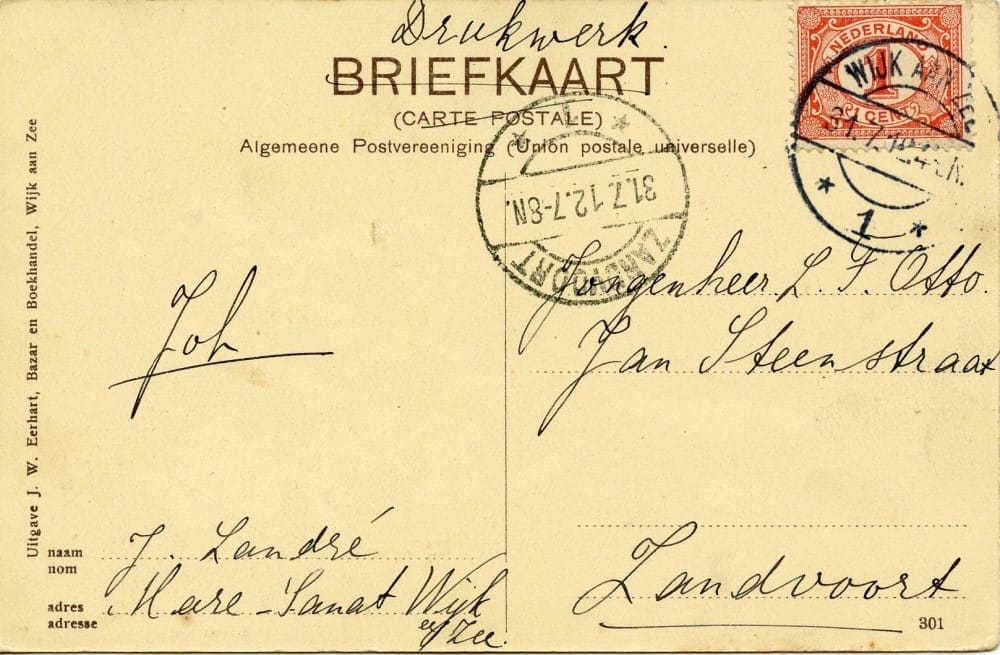 Drukwerk.
BRIEFKAART
(CARTE POSTALE)
Algemeene Postvereeniging (Union postale universelle)
NEDERLAND
1
1 CENT
WIJK AAN ZEE
31.7.12.4-5N.
1
1
31.7.12.7-8N.
ZANDVOORT
Jongenheer L. F. Otto.
Jan Steenstraat
Zandvoort
Joh
Uitgave J. W. Eerhart, Bazar en Boekhandel, Wijk aan Zee
naam J. Landré
nom
adres Mare-Sanat Wijk
adresse a/Zee.
301